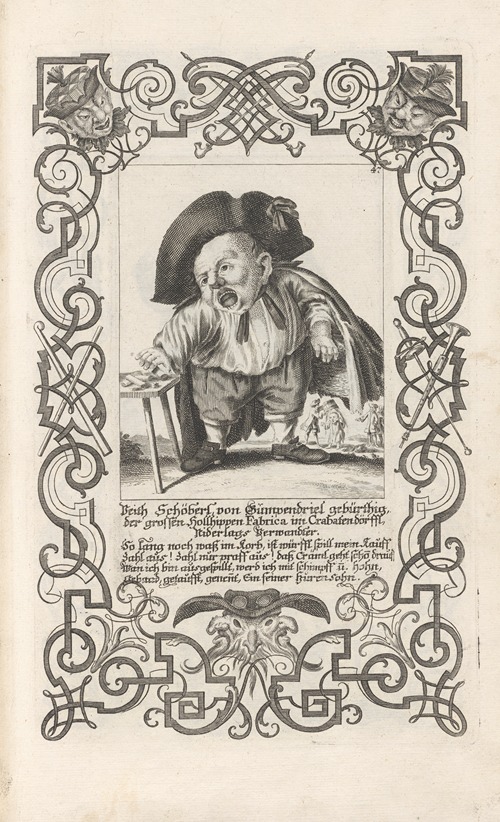 4.
Veith Schöberl, von Gumpendriel gebürthig,
der grossen Hollhippen Fabrica im Crabatendörffl,
Niderlags Verwandter.
So lang noch waß im Korb, ist würffl spill mein Kauff
Zahl aus! Zahl nur graff aus! daß Craml geht schö drauf,
Wan ich bin ausgespilt, werd ich mit schimpf u. hohn,
getaufft, genent, Ein feiner hürensohn.